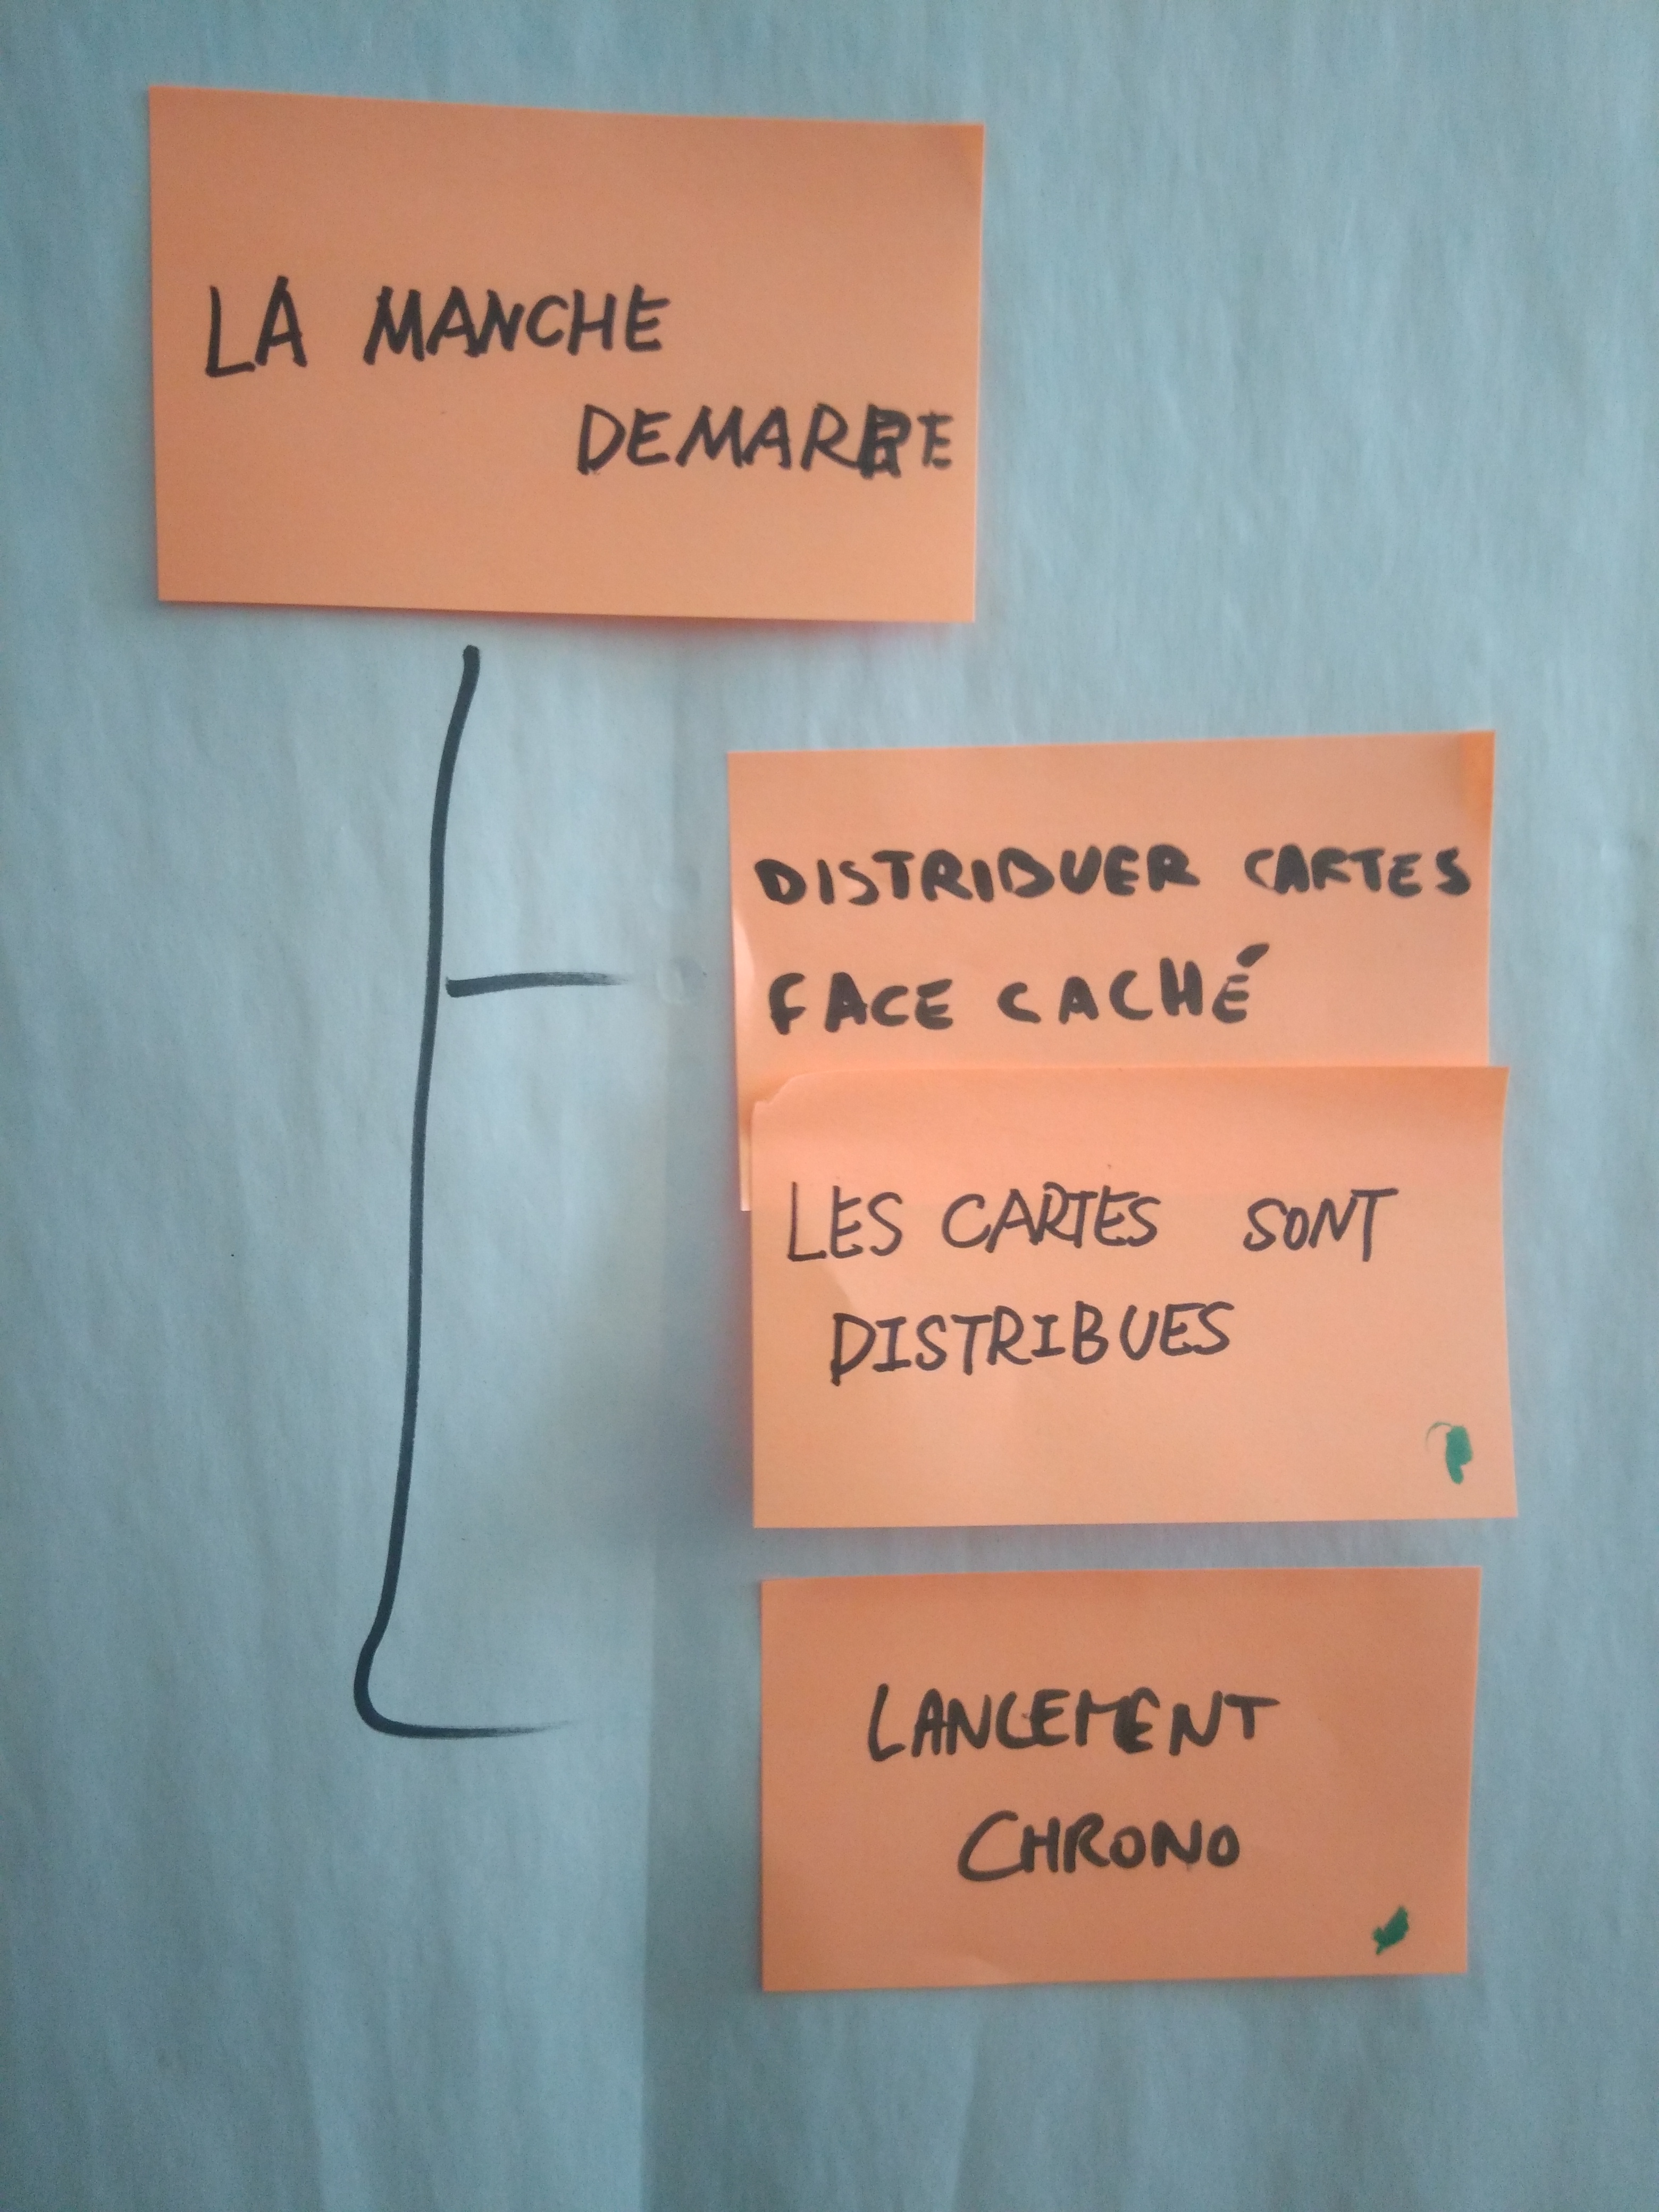 LA MANCHE
DEMARRE
DISTRIBUER CARTES
FACE CACHÉ
LES CARTES SONT
DISTRIBUES
LANCEMENT
CHRONO